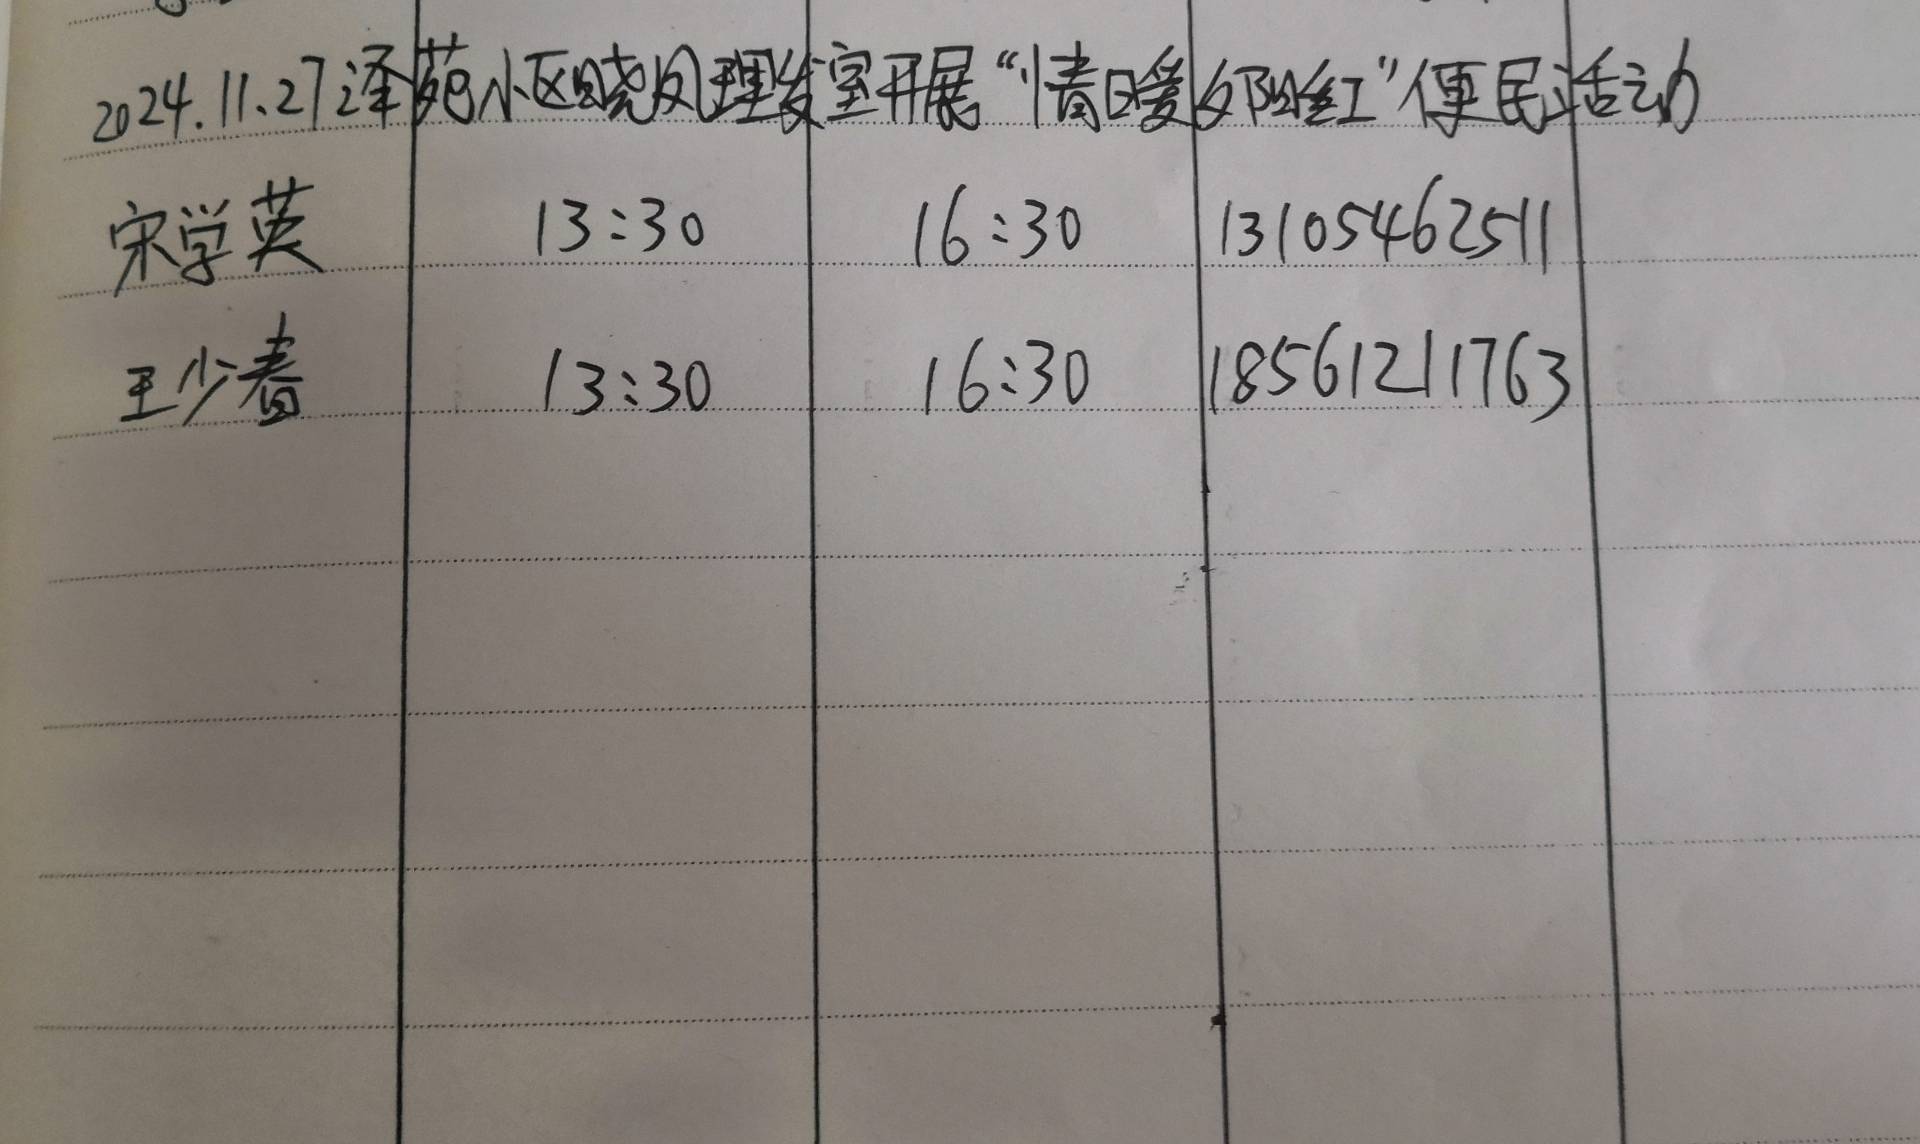 2024.11.27泽苑小区晓风理发室开展“情暖夕阳红”便民活动
宋学英 13:30 16:30 13105462511
王少春 13:30 16:30 18561211763